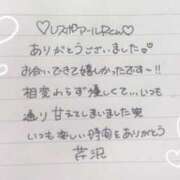 ♡レスポアールRくん♡
ありがとうございました。
お会いできて嬉しかったです〜!!
相変わらず優しくて、いつも
通り甘えてしまいました笑
いつも楽しい時間をありがとう
芹沢